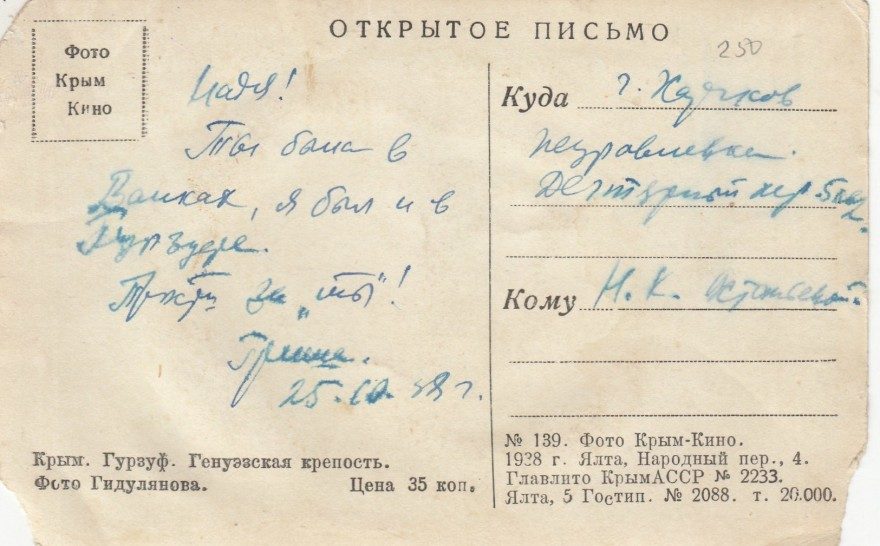 ОТКРЫТОЕ ПИСЬМО
250
Фото
Крым
Кино
Надя!
Ты была в
Банках, я был и в
Гурзуфе.
Прости за "ты"!
Гриша.
25. 10. 38 г.
Куда г. Харьков
Журавлевка.
пер
Кому Н. К.
Крым. Гурзуф. Генуэзская крепость.
Фото Гидулянова. Цена 35 коп.
№ 139. Фото Крым-Кино.
1938 г. Ялта, Народный пер., 4.
Главлито КрымАССР № 2233.
Ялта, 5 Гостип. № 2088. т. 20.000.